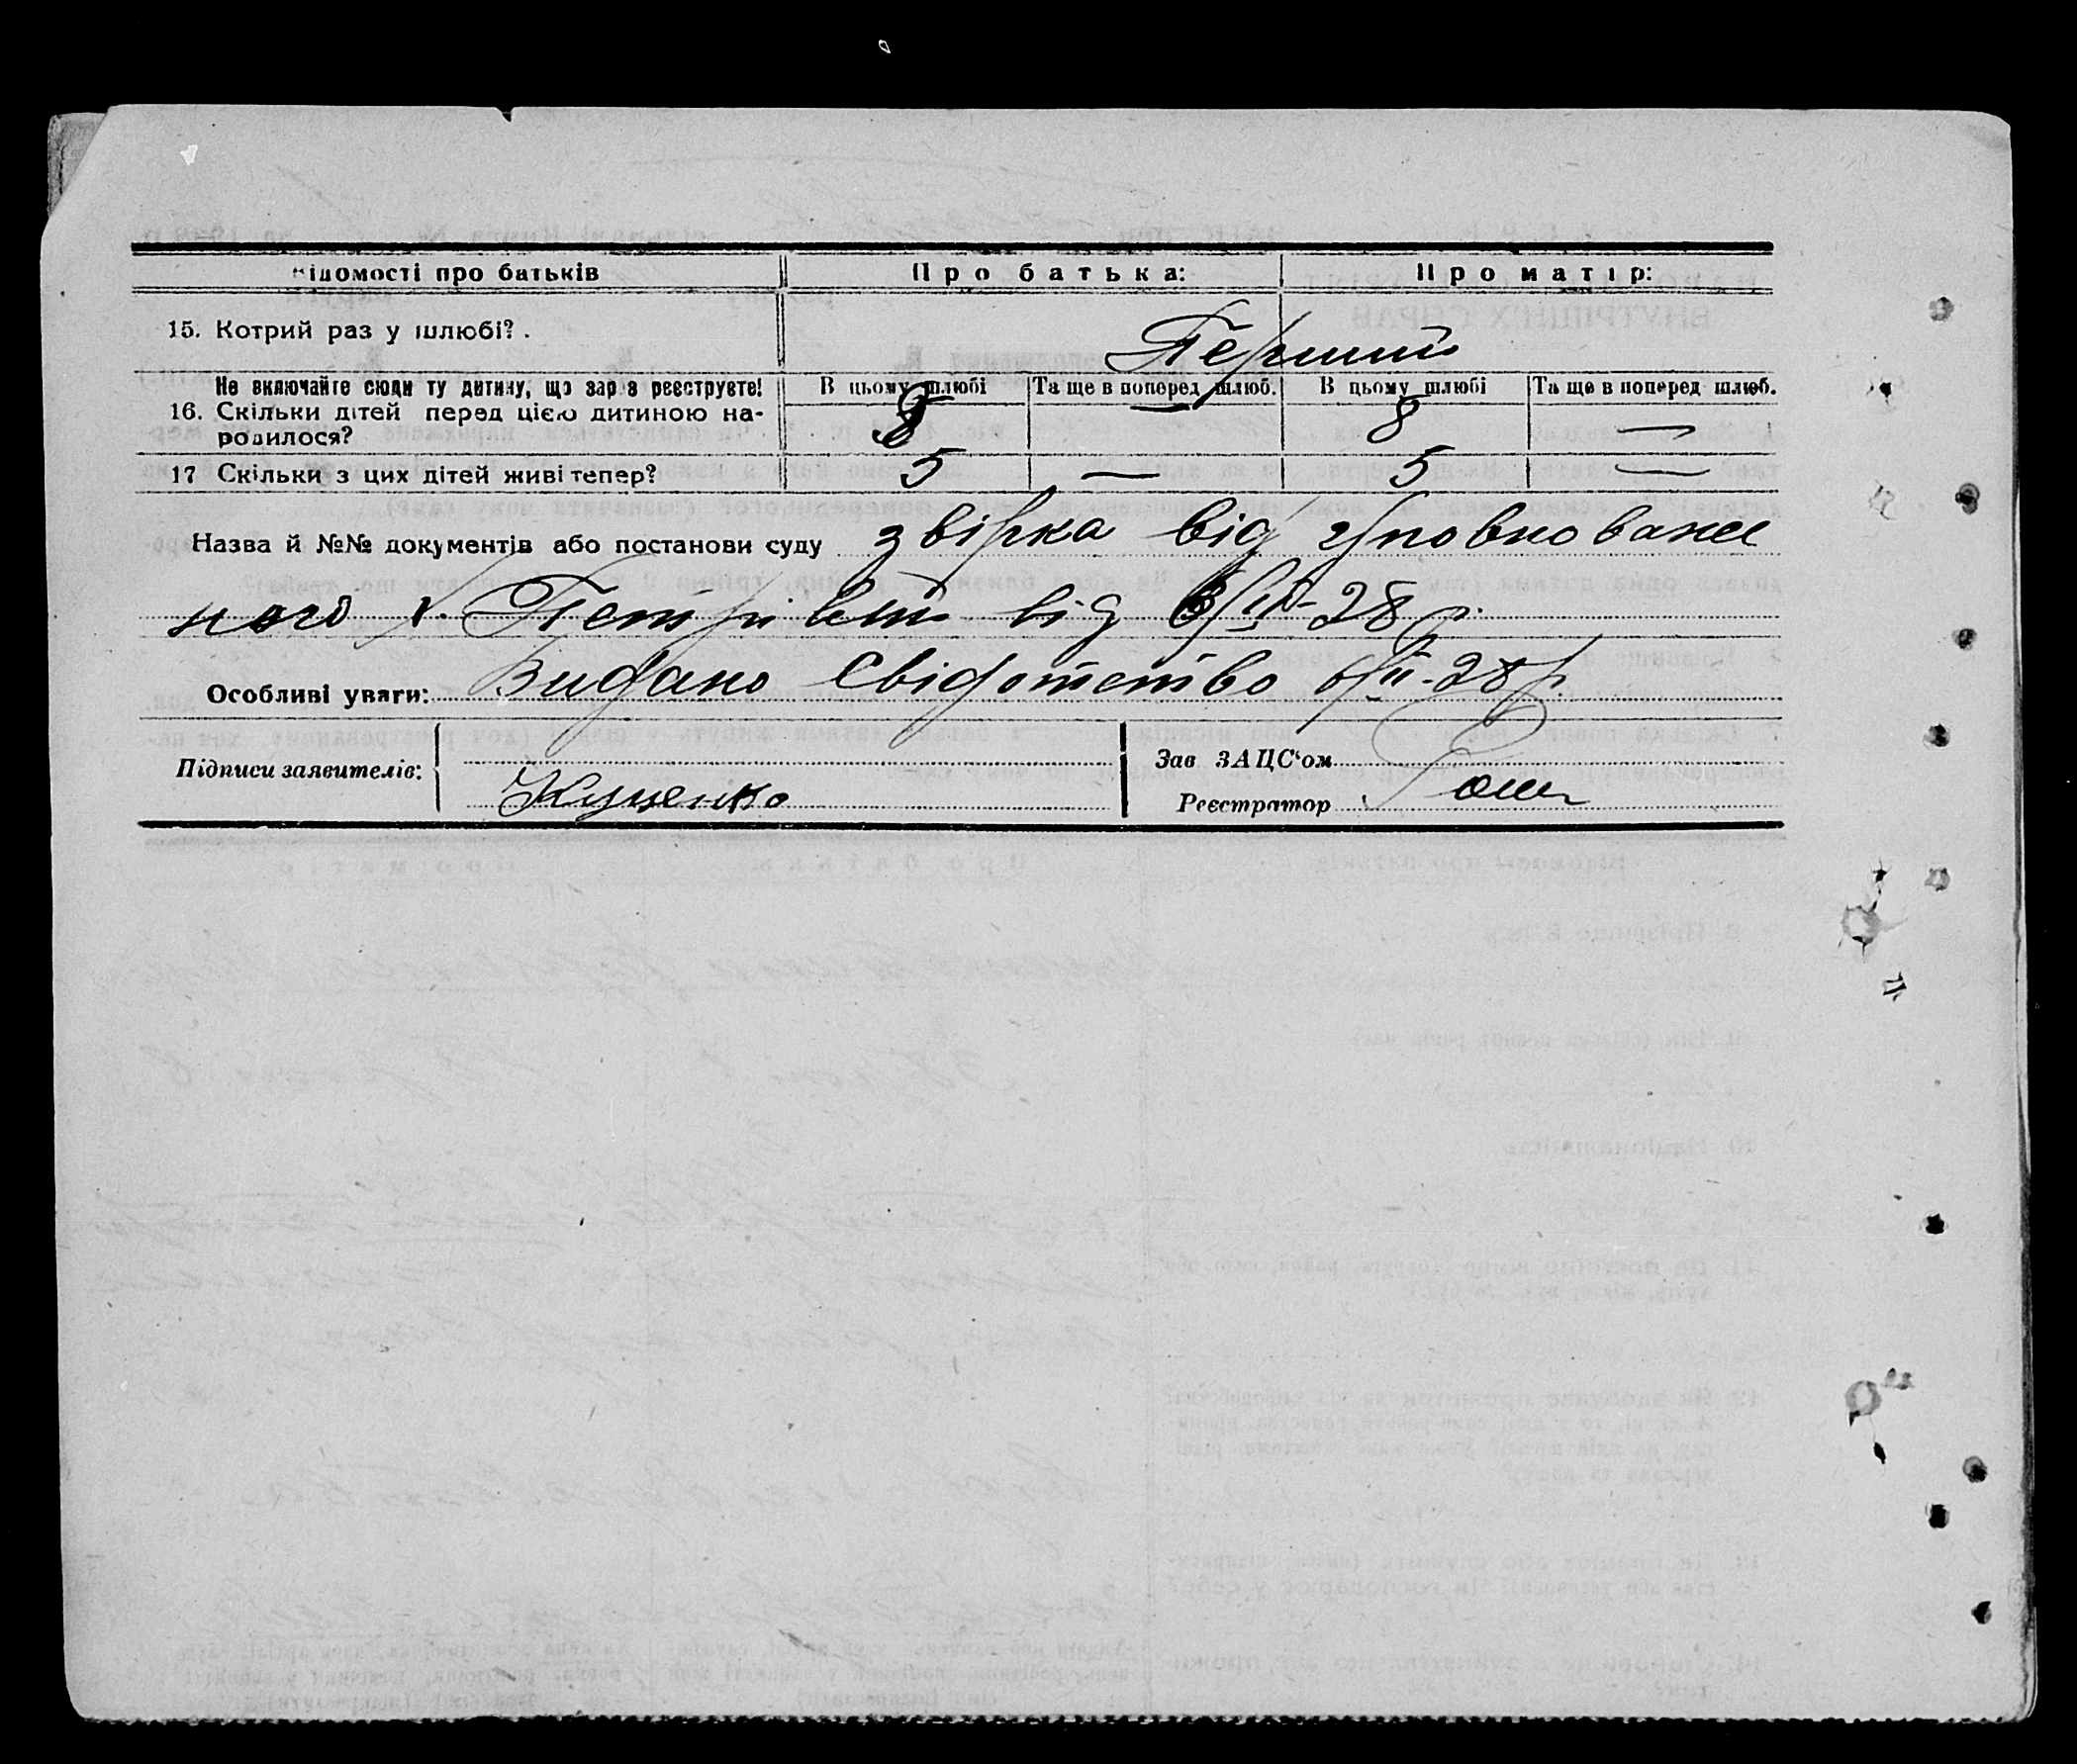 Відомості про батьків Про батька: Про матір:
15. Котрий раз у шлюбі? . Перший
Не включайте сюди ту дитину, що зараз реєструєте! В цьому шлюбі Та ще в поперед. шлюб. В цьому шлюбі Та ще в поперед шлюб.
16. Скільки дітей перед цією дитиною на-
родилося? 8 — 8 —
17 Скільки з цих дітей живі тепер? 5 — 5 —
Назва й №№ документів або постанови суду звірка від уповноваже
ного х. Петрівки від 6/II-28 р.
Особливі уваги: Видано Свідотство 6/II-28 р.
Підписи заявителів: Куценко
Зав ЗАЦС'ом
Реєстратор